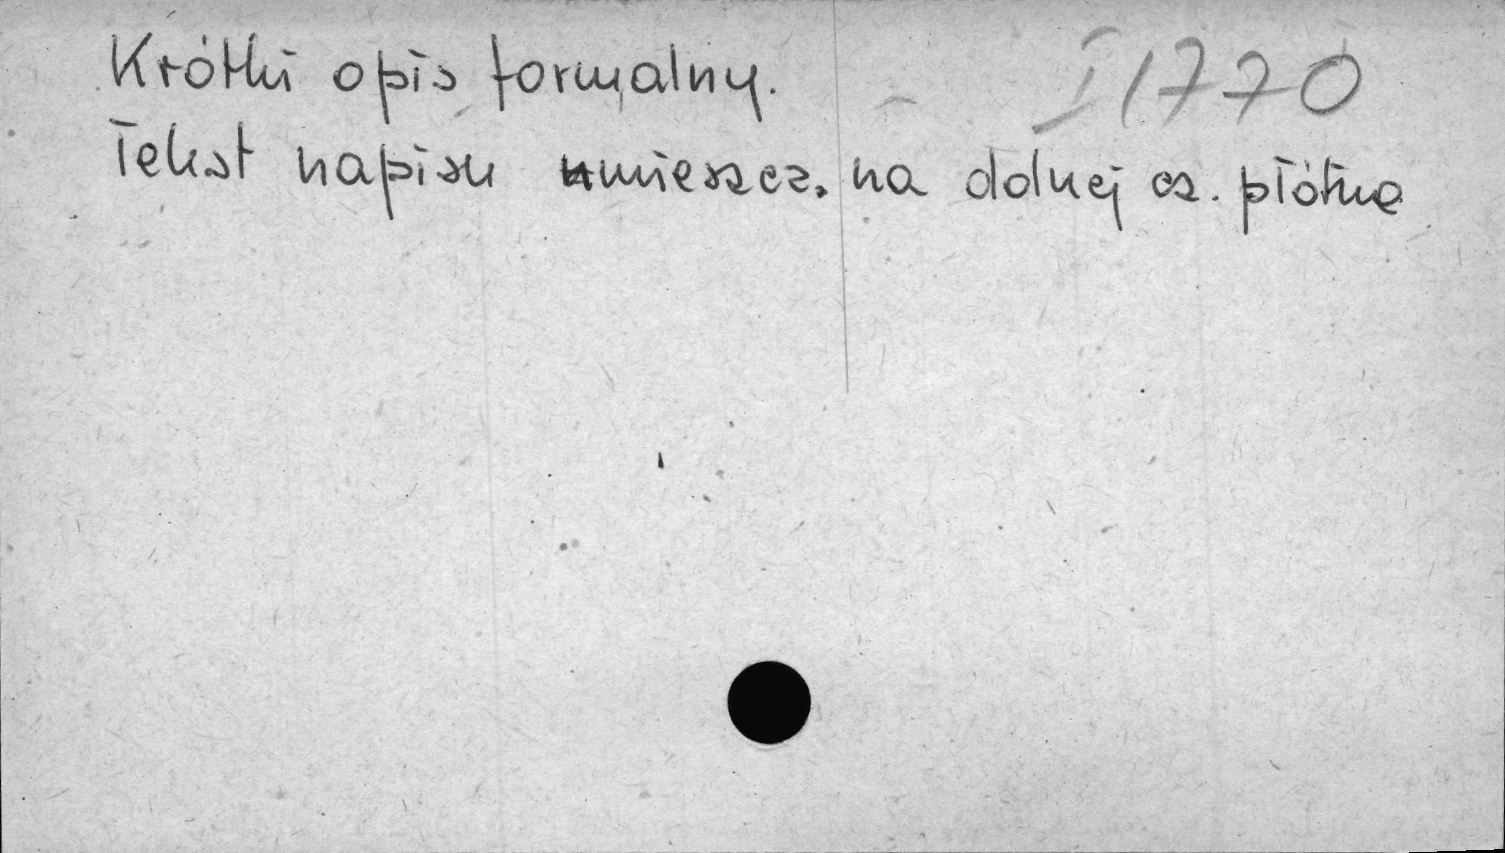 Krótki opis formalny. I/770
Tekst napisu umieszcz. na dolnej cz. płótna